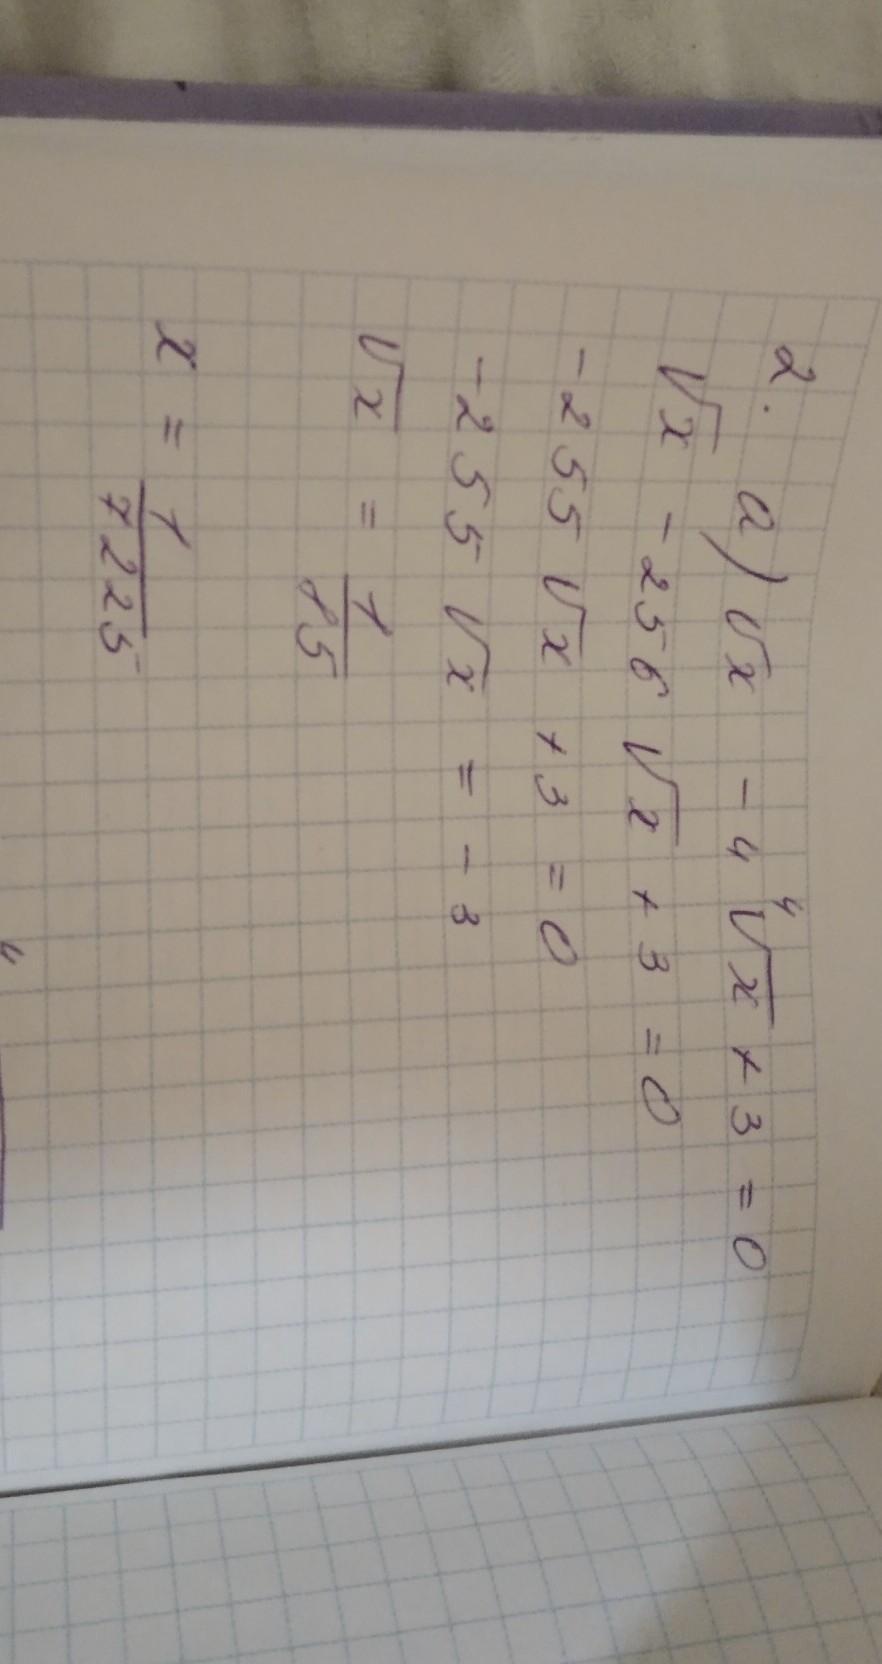 2. a) √x - 4 ⁴√x + 3 = 0
√x - 256 √x + 3 = 0
-255 √x + 3 = 0
-255 √x = -3
√x = 1/85
x = 1/7225
4